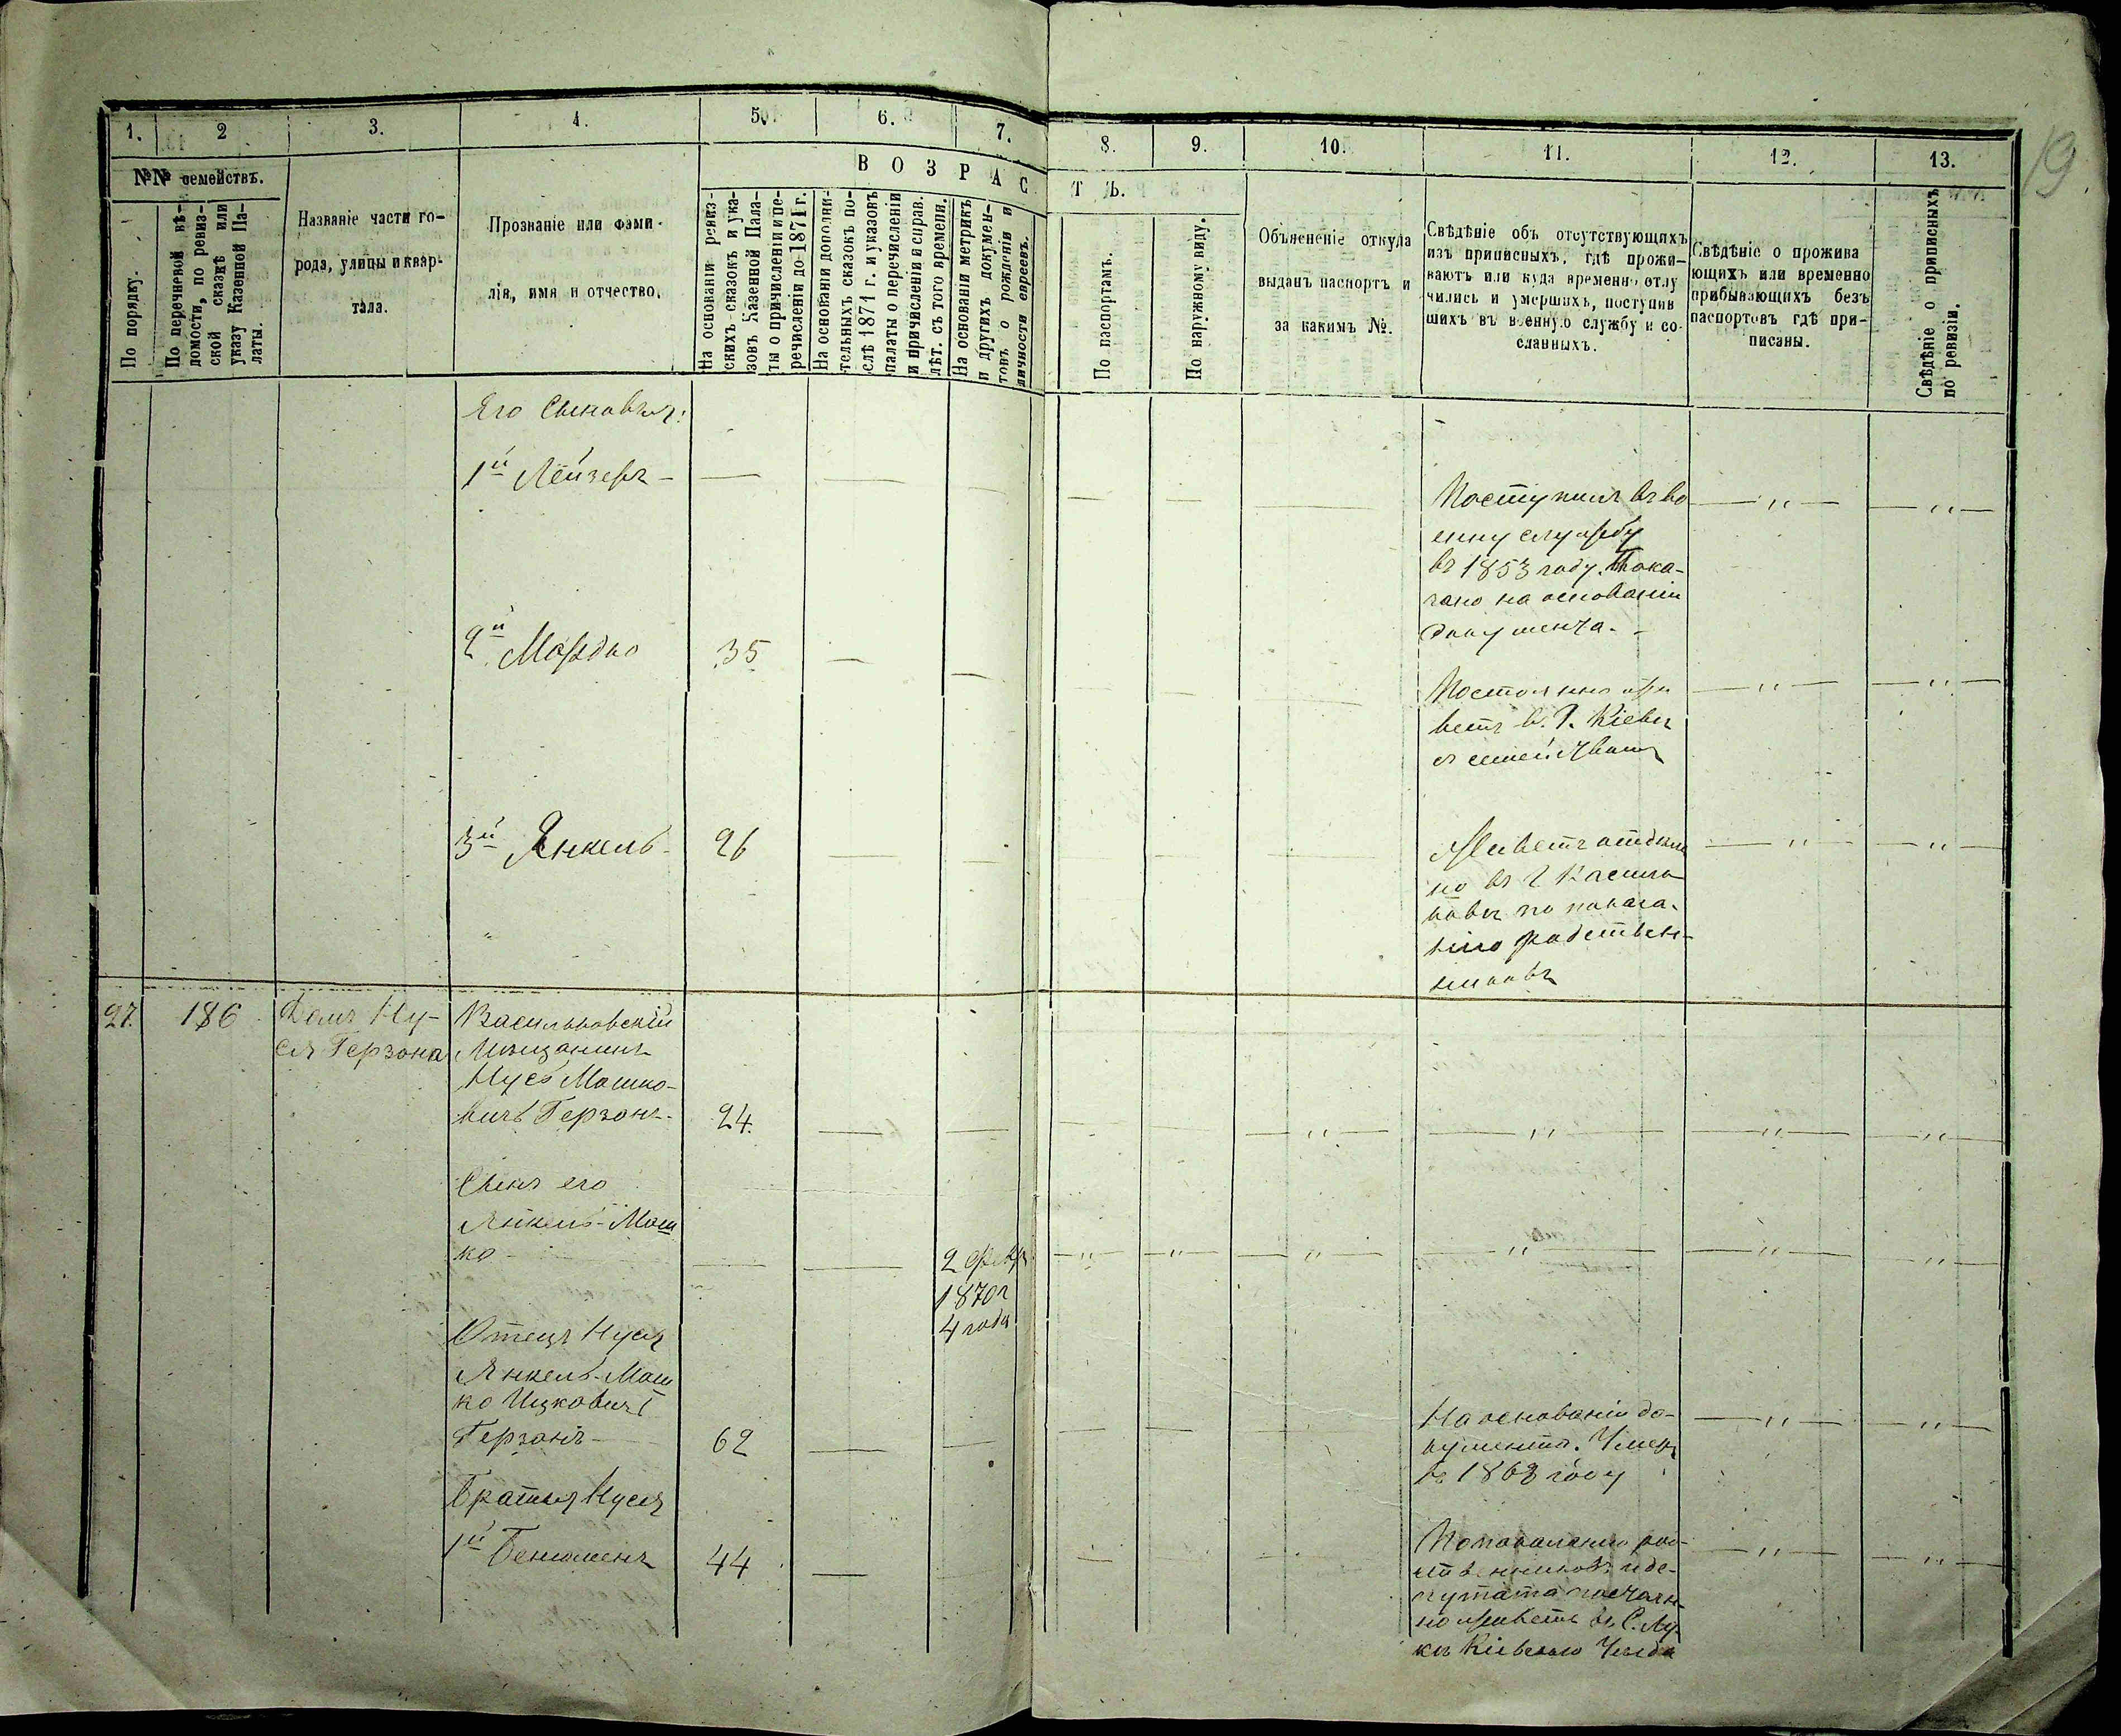 19.
1. 2 3. 4. 5. 6. 7. 8. 9. 10. 11. 12. 13.
№№ семействъ.
По порядку.
По перечневой вѣ-
домости, по ревиз-
ской сказкѣ или
указу Казенной Па-
латы.
Названіе части го-
рода, улицы и квар-
тала.
Прозваніе или фами-
лія, имя и отчество.
ВОЗРАСТЪ.
На основаніи ревиз-
скихъ сказокъ и ука-
зовъ Казенной Пала-
ты о причисленіи и пе-
речисленіи до 1871 г.
На основаніи дополни-
тельныхъ сказокъ по-
слѣ 1871 г. и указовъ
палаты о перечисленіи
и причисленіи и справ.
лѣт. съ того времени.
На основаніи метрикъ
и другихъ докумен-
товъ о рожденіи и
личности евреевъ.
По паспортамъ.
По наружному виду.
Объясненіе откуда
выданъ паспортъ и
за какимъ №.
Свѣдѣніе объ отсутствующихъ
изъ приписныхъ, гдѣ прожи-
ваютъ или куда временно отлу
чились и умершихъ, поступив
шихъ въ военную службу и со-
сланныхъ.
Свѣдѣніе о прожива
ющихъ или временно
прибывающихъ безъ
паспортовъ гдѣ при-
писаны.
Свѣдѣніе о приписныхъ
по ревизіи.
Его сыновья:
1й Лейзеръ — — — — — — —
Поступилъ въ во
енну службу
въ 1853 году. Пока-
зано на основаніи
документа.
2й Мордко 35
Постоянно жи
ветъ в. г. Кіевѣ
съ семействомъ
3й Янкель 26
Живетъ отдѣль
но въ г Василь
ковѣ по показа-
нію родствен-
никовъ
27. 186 Домъ Ну-
ся Герзона
Васильковскій
Мѣщанинъ
Нусь Мошко-
вичъ Герзонъ 24.
Сынъ его
Янкель-Мош
ко
2 февр
1870 г
4 года
Отецъ Нуся
Янкель-Мош
ко Ицковичъ
Герзонъ 62
На основаніи до-
кумента. Умеръ
въ 1868 году
Братья Нуся
1й Бенюменъ 44
По показанію род-
ственниковъ и де-
путата постоян-
но живетъ въ С.
Кіевскаго Уѣзда